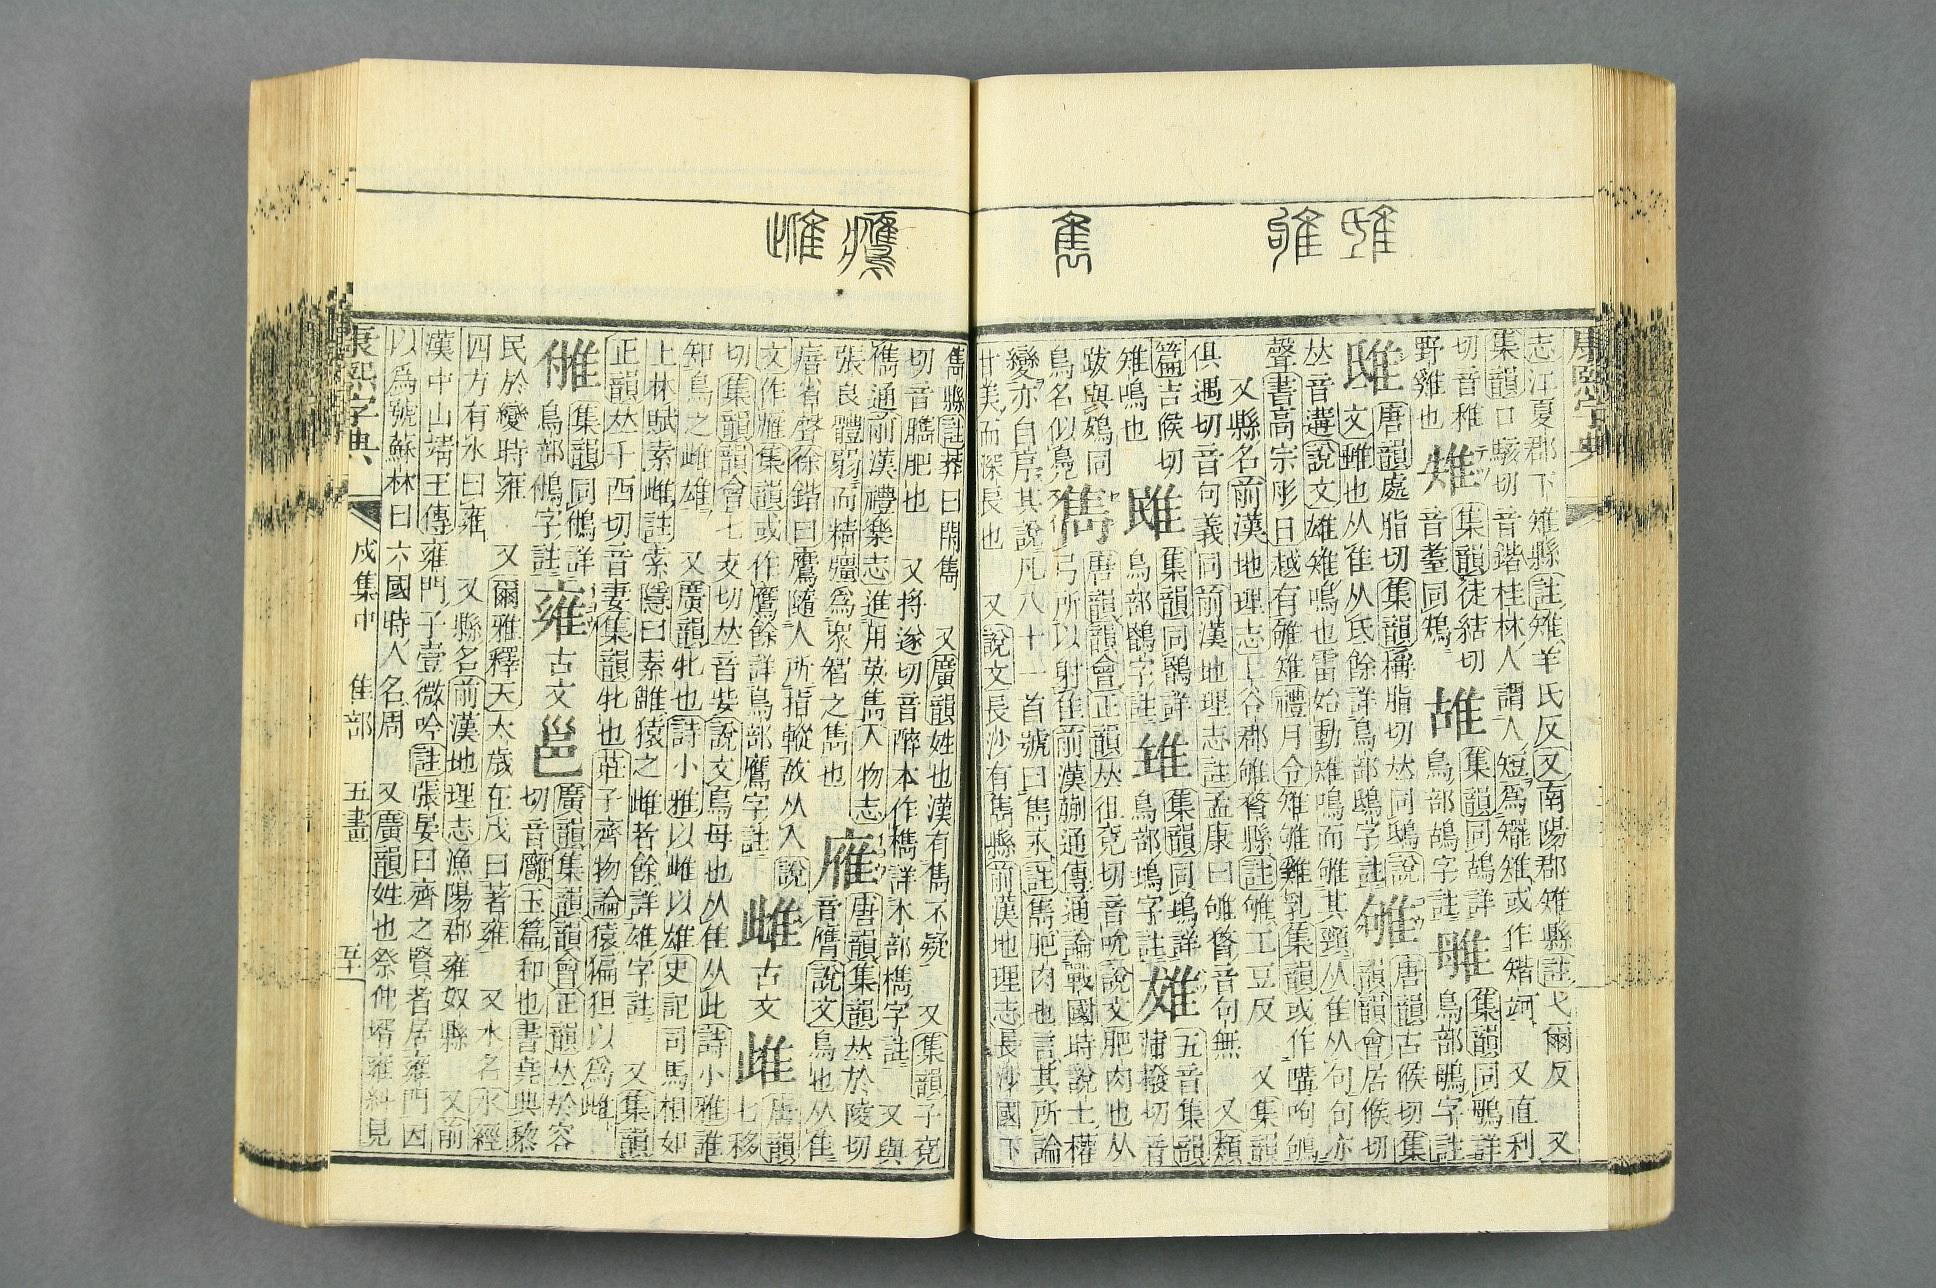 志江夏郡下雉縣註雉羊氏反又南陽郡雉縣註弋爾反 又
集韻口駭切音鍇桂林人謂人短爲𨾚雉或作矲䂓 又直利
切音稚 集韻徒結切 集韻同鴣詳 集韻同鴞詳
野雞也 音耊同鴩 鳥部鴣字註 鳥部鴞字註
鴟 唐韻處脂切集韻稱脂切𠀤同鴟說 雊 唐韻古候切集
文雖也从隹从氏餘詳鳥部鴟字註 韻韻會居候切
𠀤音遘說文雄雉鳴也雷始動雉鳴而雊其頸从隹从句句亦
聲書高宗肜日越有雊雉禮月令雉雊雞乳集韻或作
又縣名前漢地理志上谷郡雊瞀縣註雊工豆反 又集韻
俱遇切音句義同前漢地理志註孟康曰雊瞀音句無 又類
篇吉侯切 集韻同 集韻同鳿詳 五音集韻
雉鳴也 鳥部 字註 鳥部 字註 蒲撥切音
跋與鴔同 雋 唐韻韻會正韻𠀤徂兗切音吮說文肥肉也从
鳥名似鳧 弓所以射隹前漢蒯通傳通論戰國時說士權
變亦自序其說凡八十一首號曰雋永註雋肥肉也言其所論
甘美而深長也 又說文長沙有雋縣前漢地理志長沙國下
雋縣註莽曰閏雋 又廣韻姓也漢有雋不疑 又集韻子兗
切音臇肥也 又將遂切音醉本作檇詳木部檇字註 又與
儁通前漢禮樂志進用英雋人物志 雁 唐韻集韻𠀤於陵切
張良體弱而精彊爲衆智之雋也 音膺說文鳥也从隹
瘖省聲徐鍇曰鷹隨人所指𨄔故从人說
文作䧹集韻或作鷹餘詳鳥部鷹字註 雌 古文 𨾲 唐韻七移
切集韻韻會七支切𠀤音㧗說文鳥母也从隹从此詩小雅誰
知鳥之雌雄 又廣韻牝也詩小雅以雌以雄史記司馬相如
上林賦素雌註索隱曰素雌猿之雌者餘詳雄字註 又集韻
正韻𠀤千西切音妻集韻牝也莊子齊物論猿猵狙以爲雌
集韻同鵂詳 雍 古文 邕 廣韻集韻韻會正韻𠀤於容
鳥部鵂字註 切音廱玉篇和也書堯典黎
民於變時雍 又爾雅釋天太歲在戊曰著雍 又水名水經
四方有水曰雍 又縣名前漢地理志漁陽郡雍奴縣 又前
漢中山靖王傳雍門子壹微吟註張晏曰齊之賢者居雍門因
以爲號蘇林曰六國時人名周 又廣韻姓也祭仲壻雍糾見
康熙字典 戌集中 隹部 五畫 五十